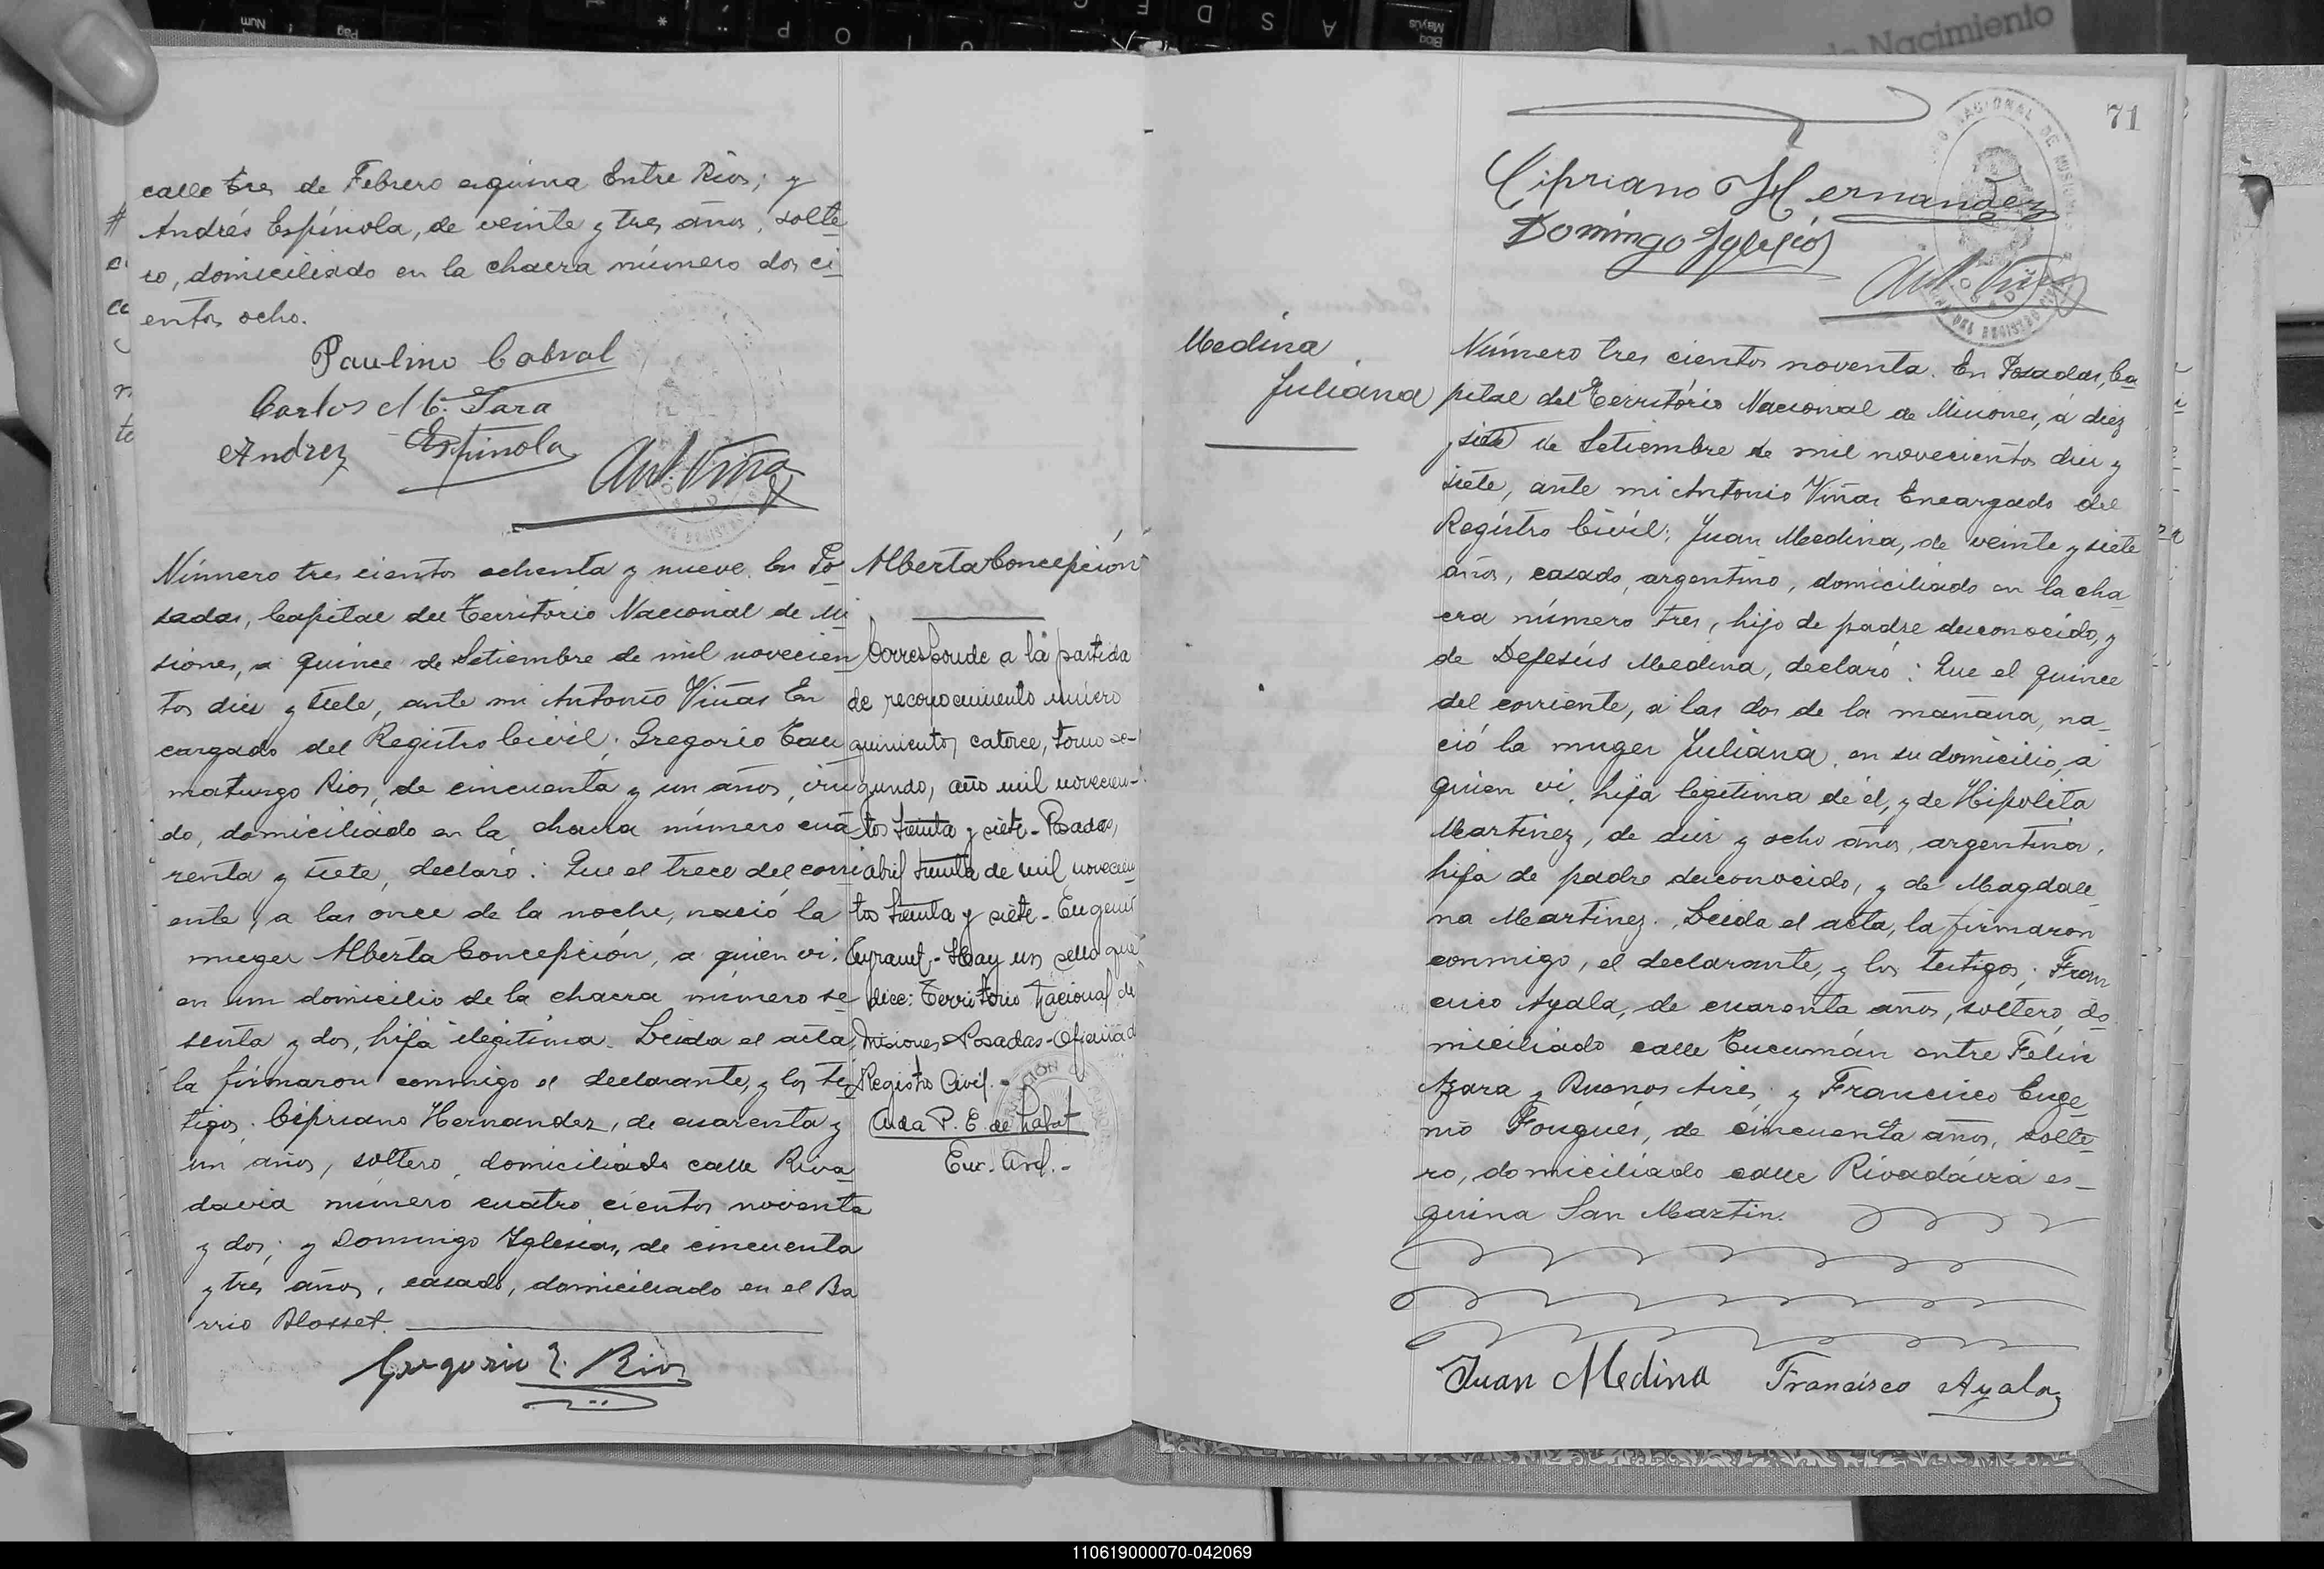 calle tres de Febrero esquina Entre Rios; y
Andrés Espínola, de veinte y tres años, solte
ro, domiciliado en la chacra número dos ci
entos ocho.
Paulino Cabral
Carlos M. C. Jara
Andrez Espinola
Ant. Viñas
Número tres cientos ochenta y nueve. En Po
sadas, Capital del Territorio Nacional de Mi
siones, a quince de Setiembre de mil novecien
tos diez y siete, ante mi Antonio Viñas En
cargado del Registro Civil; Gregorio Tau
maturgo Rios, de cincuenta y un años, viu
do, domiciliado en la chacra número cua
renta y siete, declaró: Que el trece del corri
ente, a las once de la noche, nació la
muger Alberta Concepción, a quien vi,
en un domicilio de la chacra número se
senta y dos, hija ilegitima. Leida el acta,
la firmaron conmigo el declarante, y los tes
tigos: Cipriano Hernandez, de cuarenta y
un años, soltero, domiciliado calle Riva
davia número cuatro cientos noventa
y dos; y Domingo Iglesias, de cincuenta
y tres años, casado, domiciliado en el Ba
rrio Blosset.
Gregorio T. Rios
Alberta Concepción
Corresponde a la partida
de reconocimiento número
quinientos catorce, tomo se-
gundo, año mil novecien-
tos treinta y siete - Posadas,
abril treinta de mil novecien
tos treinta y siete - Eugenio
- Hay un sello que
dice: Territorio Nacional de
Misiones - Posadas - Oficina d
Registro Civil. -
Aida P. E. de
Enc. Arch. -
71
Cipriano Hernandez
Domingo Iglesias
Ant. Viñas
Medina
Juliana
Número tres cientos noventa. En Posadas, Ca
pital del Territorio Nacional de Misiones, á diez
y siete de Setiembre de mil novecientos diez y
siete, ante mi Antonio Viñas Encargado del
Registro Civil; Juan Medina, de veinte y siete
años, casado, argentino, domiciliado en la cha
cra número tres, hijo de padre desconocido, y
de Dejesús Medina, declaró: Que el quince
del corriente, a las dos de la mañana, na
ció la muger Juliana, en su domicilio, a
quien vi, hija legitima de él, y de Hipolita
Martinez, de diez y ocho años, argentina,
hija de padre desconocido, y de Magdale
na Martinez. Leida el acta, la firmaron
conmigo, el declarante, y los testigos; Fran
cisco Ayala, de cuarenta años, soltero, do
miciliado calle Tucumán entre Felix
Azara y Buenos Aires; y Francisco Euge
nio Fouqués, de cincuenta años, solte
ro, domiciliado calle Rivadavia es-
quina San Martin.
Juan Medina Francisco Ayala
110619000070-042069